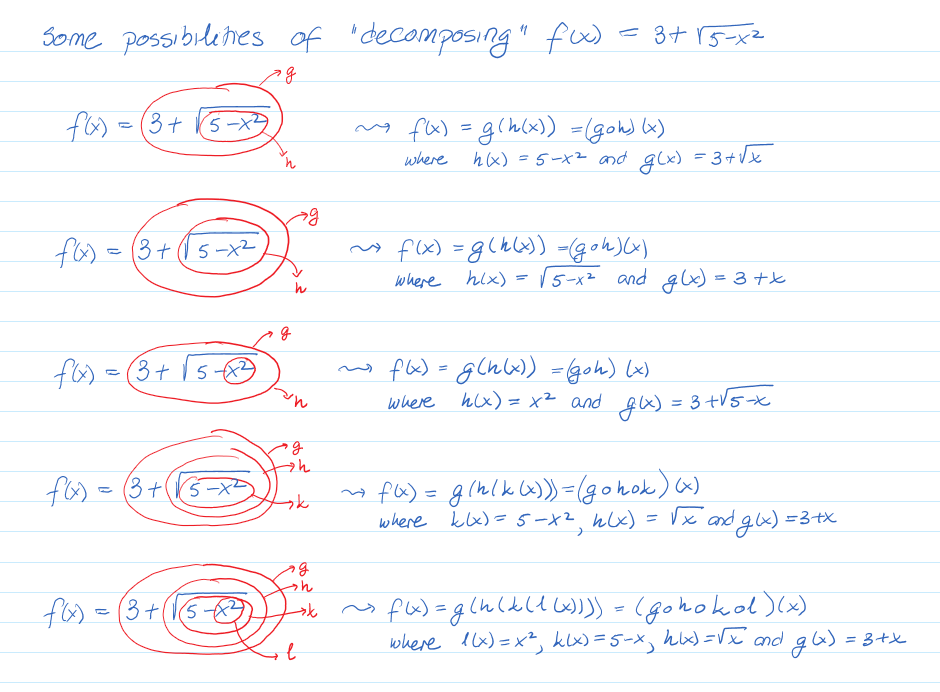 some possibilities of "decomposing" f(x) = 3+ √5-x²
g
f(x) = 3+ √5-x² ⇝ f(x) = g(h(x)) =(goh)(x)
h where h(x) = 5-x² and g(x) = 3+√x
g
f(x) = 3+ √5-x² ⇝ f(x) = g(h(x)) =(goh)(x)
h where h(x) = √5-x² and g(x) = 3+x
g
f(x) = 3+ √5-x² ⇝ f(x) = g(h(x)) =(goh)(x)
h where h(x) = x² and g(x) = 3+√5-x
g
h
f(x) = 3+ √5-x² ⇝ f(x) = g(h(k(x)))=(gohok)(x)
k where k(x) = 5-x², h(x) = √x and g(x) =3+x
g
h
f(x) = 3+ √5-x² k ⇝ f(x) = g(h(k(l(x)))) = (gohokol)(x)
l where l(x) = x², k(x) = 5-x, h(x) = √x and g(x) = 3+x